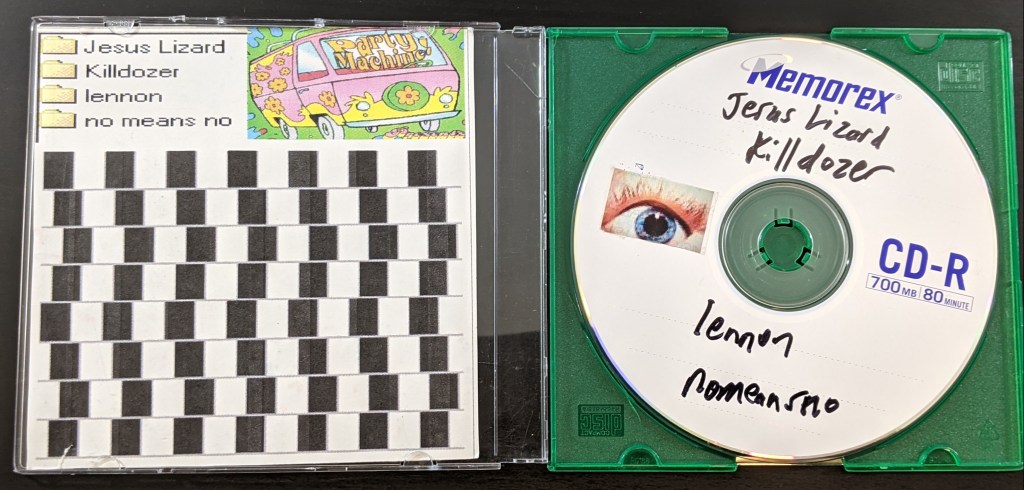 Jesus Lizard
Killdozer
lennon
no means no
Party
Machine
Memorex®
Jesus Lizard
Killdozer
CD-R
700 MB | 80 MINUTE
lennon
nomeansno
COMPACT
disc